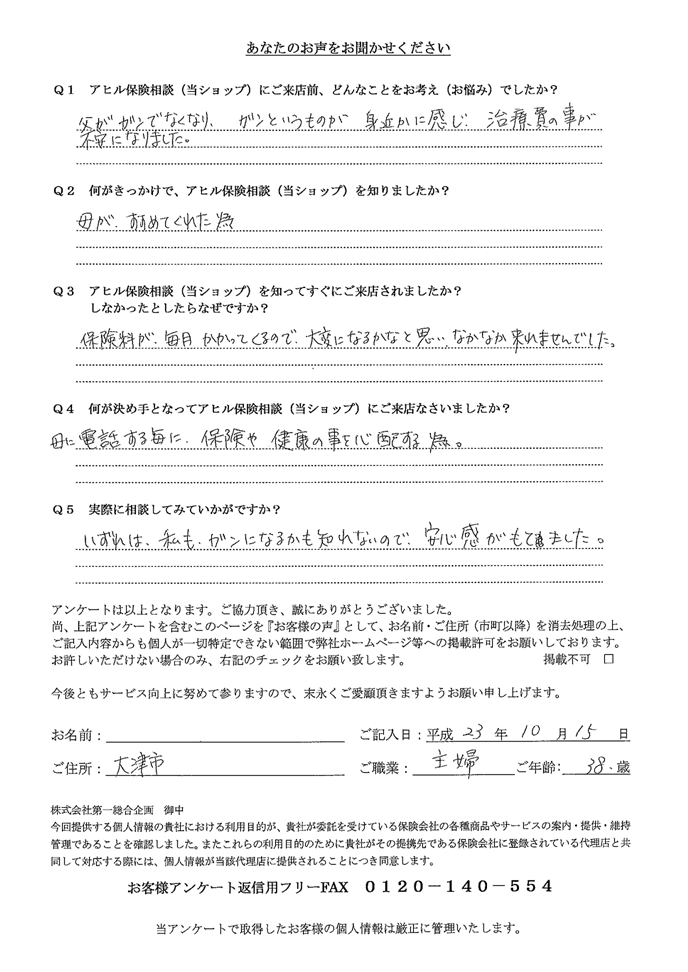 あなたのお声をお聞かせください
Q1 アヒル保険相談（当ショップ）にご来店前、どんなことをお考え（お悩み）でしたか？
父がガンでなくなり、ガンというものが 身近かに感じ、治療費の事が
不安になりました。
Q2 何がきっかけで、アヒル保険相談（当ショップ）を知りましたか？
母が、すすめてくれた為
Q3 アヒル保険相談（当ショップ）を知ってすぐにご来店されましたか？
しなかったとしたらなぜですか？
保険料が、毎月 かかってくるので、大変になるかなと思い、なかなか来れませんでした。
Q4 何が決め手となってアヒル保険相談（当ショップ）にご来店なさいましたか？
母に電話する毎に、保険や 健康の事を心配する為。
Q5 実際に相談してみていかがですか？
いずれは、私も、ガンになるかも知れないので、安心感がもてました。
アンケートは以上となります。ご協力頂き、誠にありがとうございました。
尚、上記アンケートを含むこのページを『お客様の声』として、お名前・ご住所（市町以降）を消去処理の上、
ご記入内容からも個人が一切特定できない範囲で弊社ホームページ等への掲載許可をお願いしております。
お許しいただけない場合のみ、右記のチェックをお願い致します。 掲載不可 □
今後ともサービス向上に努めて参りますので、末永くご愛顧頂きますようお願い申し上げます。
お名前： ご記入日：平成 23 年 10 月 15 日
ご住所： 大津市 ご職業： 主婦 ご年齢： 38 歳
株式会社第一総合企画 御中
今回提供する個人情報の貴社における利用目的が、貴社が委託を受けている保険会社の各種商品やサービスの案内・提供・維持
管理であることを確認しました。またこれらの利用目的のために貴社がその提携先である保険会社に登録されている代理店と共
同して対応する際には、個人情報が当該代理店に提供されることにつき同意します。
お客様アンケート返信用フリーFAX 0120－140－554
当アンケートで取得したお客様の個人情報は厳正に管理いたします。